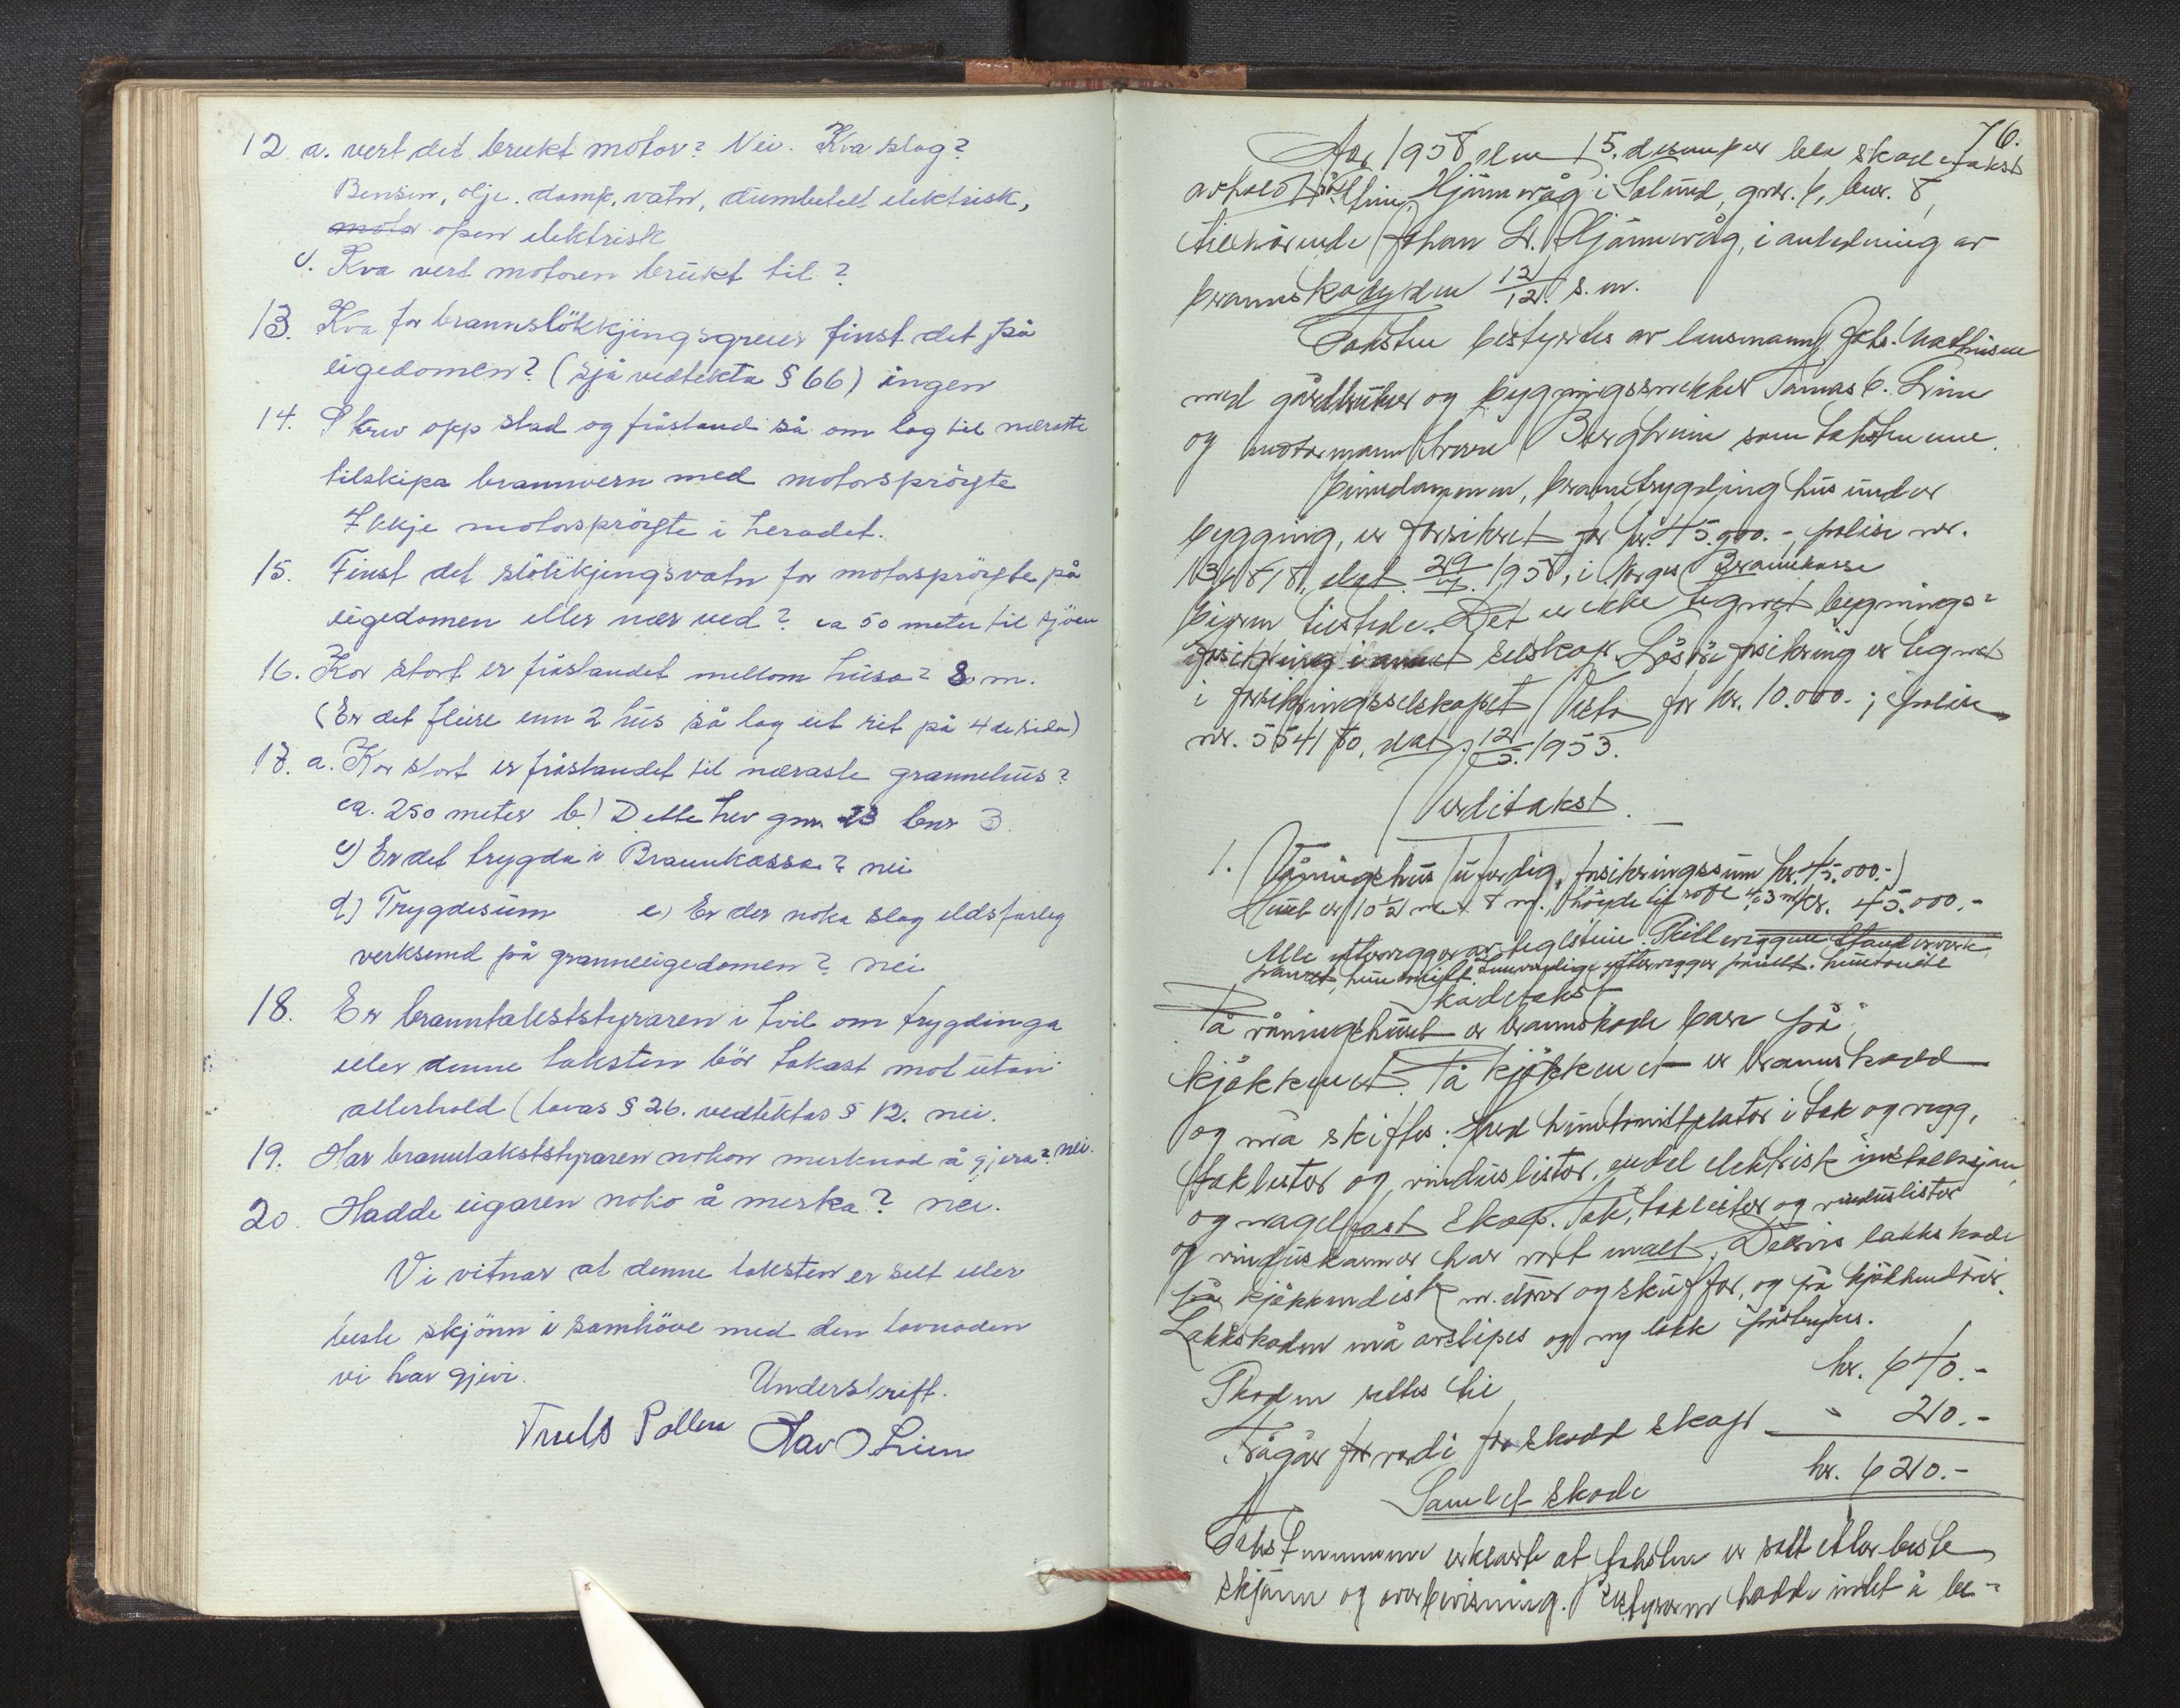 12 a. vert det brukt motor? Nei. Kva slag?
Bensin, olje. damp, vatn, dumbetell elektrisk,
motor open elektrisk
c. Kva vert motoren brukt til?
13. Kva for brannslökkjingsgreier finst det på
eigedomen? (Sjå vedtekta § 66) ingen
14. Skriv opp stad og fråstand så om lag til næraste
tilskipa brannvern med motorspröyte
Ikkje motorspröyte i heradet.
15. Finst det slökkjingsvatn for motorspröyte på
eigedomen eller nær ved? ca 50 meter til sjöen
16. Kor stort er fråstandet mellom husa? 8 m.
(Er det fleire enn 2 hus så lag eit rit på 4de sida)
17. a. Kor stort er fråstandet til næraste grannehus?
ca. 250 meter b) Dette hev gnr. 23 bnr 3.
c) Er det trygda i Brannkassa? nei
d) Trygdesum e) Er der noka slag eldsfarleg
verksemd på granneeigedomen? nei
18. Er branntakststyraren i tvil om trygdinga
eller denne taksten bör takast mot utan
atterhald (lovas § 26. vedtektas § 12. nei.
19. Har branntakststyraren nokon merknad å gjera? nei.
20. Hadde eigaren noko å merka? nei.
Vi vitnar at denne taksten er sett etter
beste skjönn i samhöve med den lovnaden
vi har gjevi.
Underskrift.
Truls Pollen Olav O Lien
76.
År 1958 den 15. desember ble skadetakst
avholdt på Hjönnevåg i Solund, gnr. 6, bnr. 8,
tilhörende Johan L. Hjönnevåg, i anledning av
brannskade den 12/12. s. m.
Taksten bestyrtes av lensmann Johs. Mathisen
med gårdbruker og bygningssnekker Tomas C. Lien
og motormann Bergheim som takstmenn.
Eiendommen, branntrygding hus under
bygging, er forsikret for kr. 45.000.-, polise nr.
dat. 29/7. 1958, i Norges Brannkasse
Eieren tilstede. Det er ikke tegnet bygnings-
forsikring i annet selskap. Lösöreforsikring er tegnet
i forsikringsselskapet Vesta for kr. 10.000.; polise
nr. 554180, dat. 12/5. 1953.
Verditakst.
1. Våningshus (uferdig, forsikringssum kr. 45.000.-)
Huset er 10½ m x 8 m., höyde til röste 4,3 m kr. 45.000.-
Alle yttervegger av teglstein. Skilleveggene standerverk
panelt, huntonitt. Innvendige yttervegger panelt. huntonitt
Skadetakst
På våningshuset er brannskade bare på
kjökkenet. På kjökkenet er brannskadd
og må skiftes: med huntonittplater i tak og vegg,
taklister og vinduslister, endel elektrisk installasjon,
og nagelfast skap. Tak, taklister og vinduslister
og vinduskarmer har vært malt. Delvis lakkskade
på kjökkendisk m. dörer og skuffer, og på kjökkendörer.
Lakkskaden må avslipes og ny lakk påstrykes.
Skaden settes til kr. 640.-
Frågår for verdi for skadd skap " 20.-
Samlet skade kr. 620.-
Takstmennene erklærte at taksten er satt etter beste
skjönn og overbevisning. Bestyreren hadde intet å be-